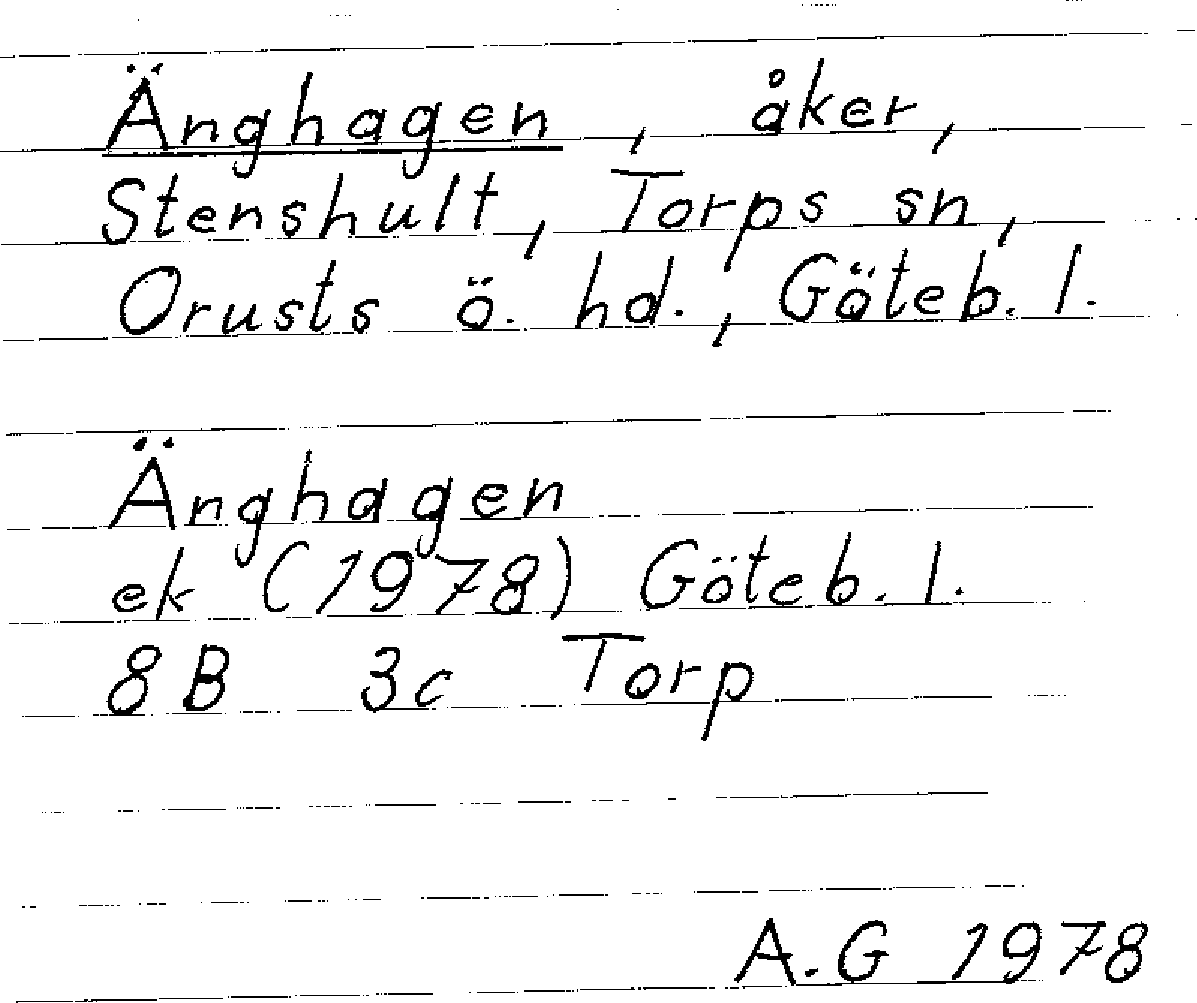 Änghagen, åker,
Stenshult, Torps sn,
Orusts ö. hd., Göteb. l.
Änghagen
ek (1978) Göteb. l.
8B 3c Torp
A.G 1978